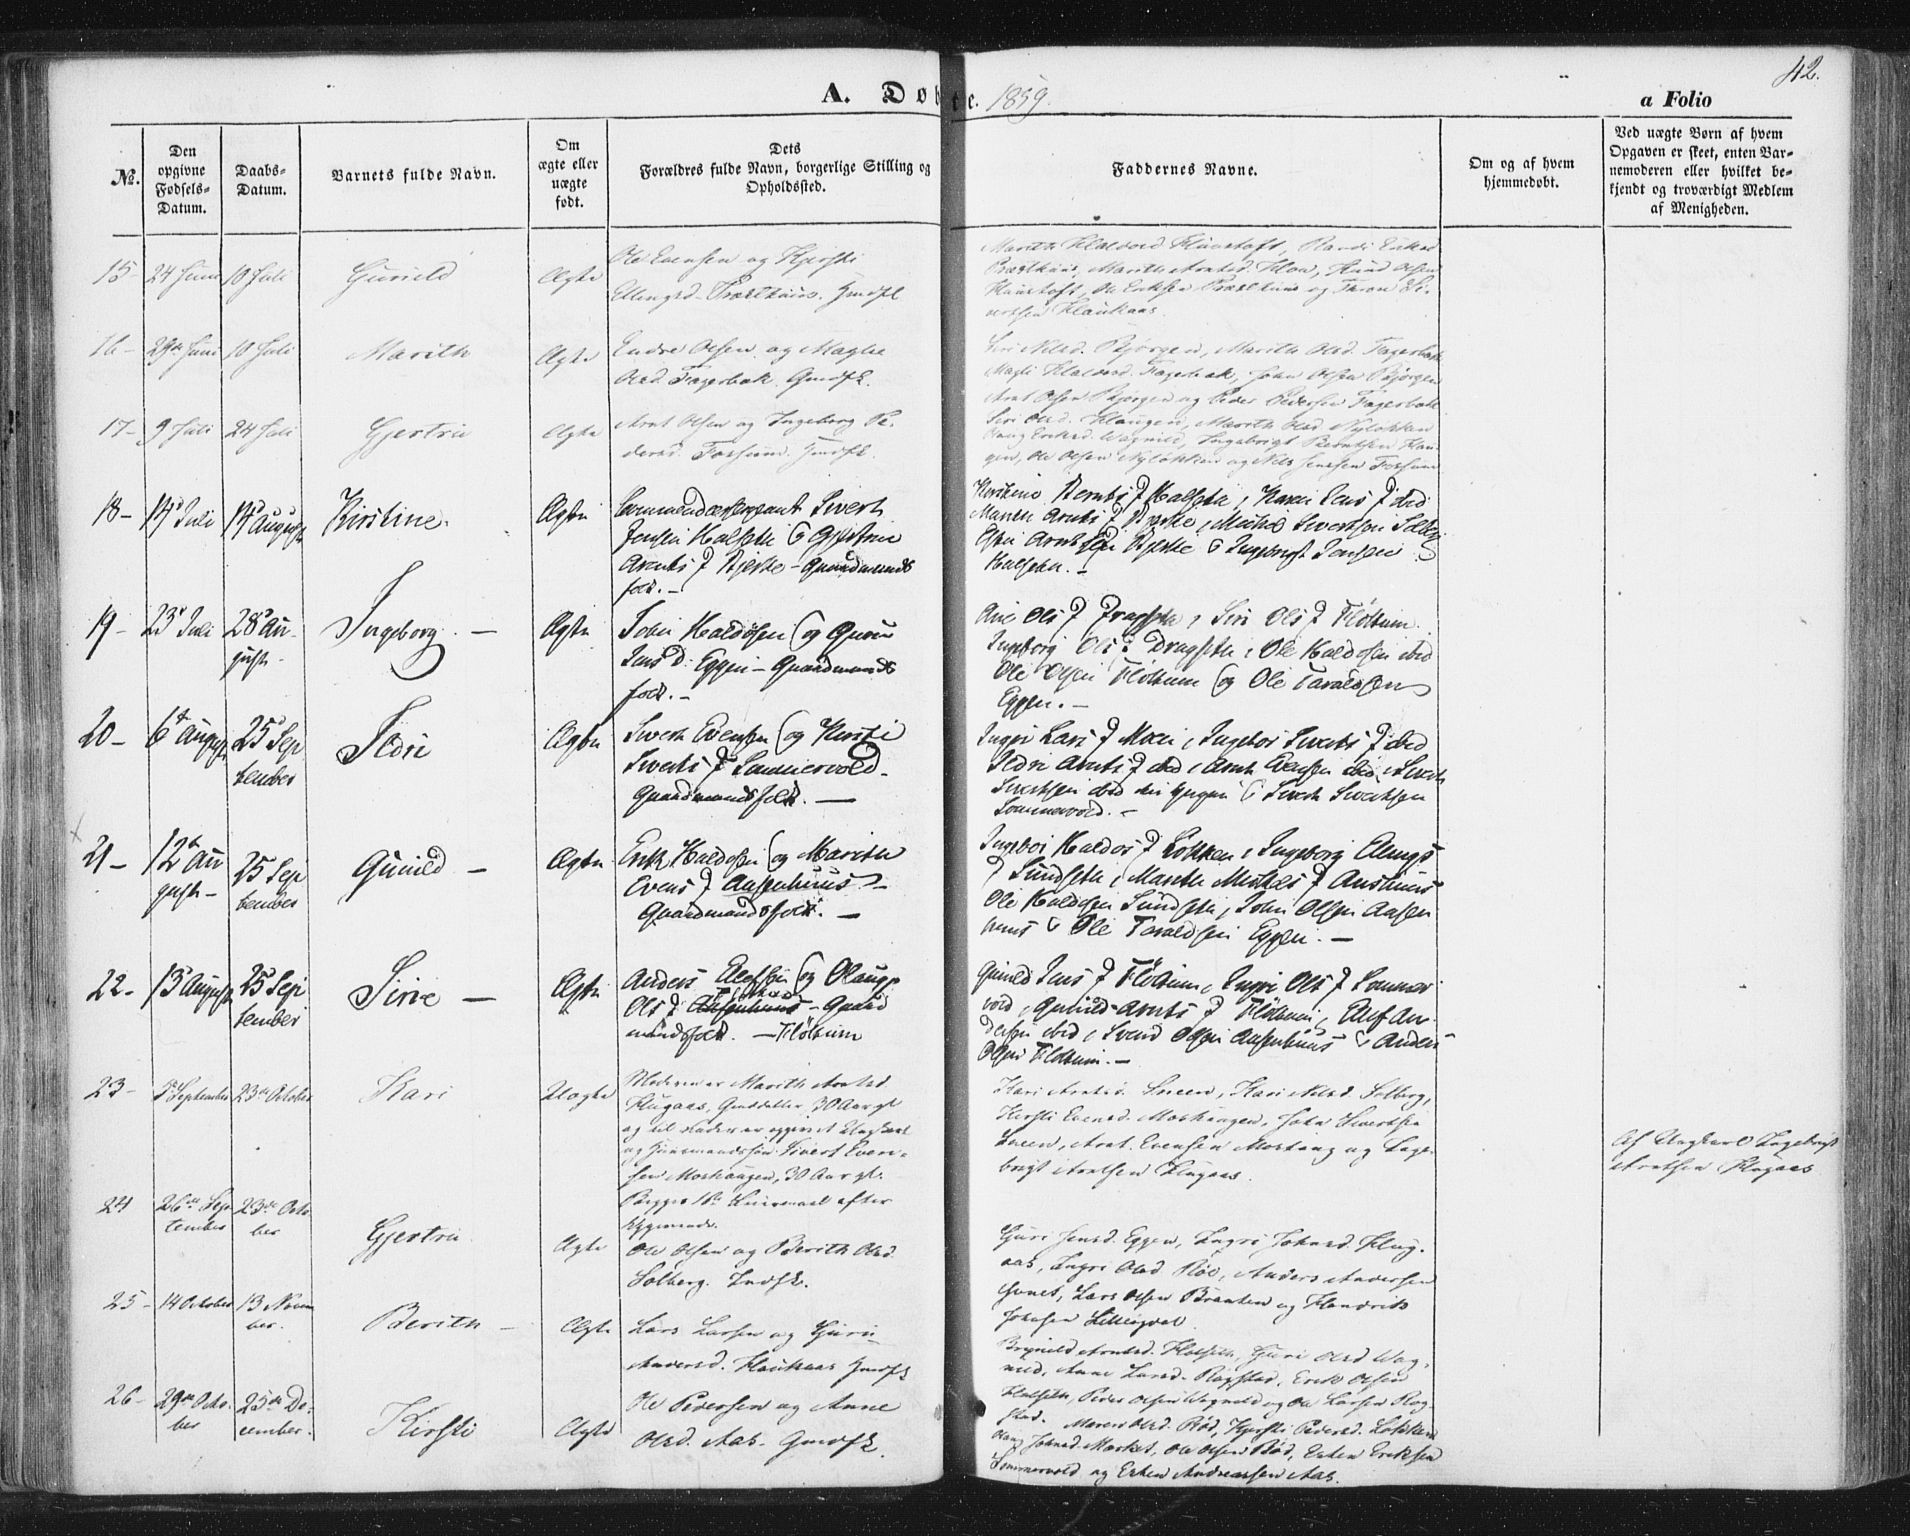 42.
A. Døbte. 1859.
a Folio
No.
Den opgivne Fødsels-Datum.
Daabs-Datum.
Barnets fulde Navn.
Om ægte eller uægte født.
Dets Forældres fulde Navn, borgerlige Stilling og Opholdssted.
Faddernes Navne.
Om og af hvem hjemmedøbt.
Ved uægte Børn af hvem Opgaven er skeet, enten Barnemoderen eller hvilket bekjendt og troværdigt Medlem af Menigheden.
15 24 Juni 10 Juli Gunild Ægte
Ole Evensen og Kjersti
Ellingsd. Præsthuus. Gmdfk
Marith Haldord
Præsthuus, Marith Arntsd. Moe,
Ole Eriksen Præsthuus og
16 29de Juni 10 Juli Marith Ægte
Endre Olsen og Magli
Olsd. Fagerbak. Gmdfk.
Siri Nilsd. Bjørgen, Marith Olsd. Fagerbak
Magli Haldord. Fagerbak, John Olsen Bjørgen
Arnt Olsen Bjørgen og Peder Pedersen Fagerbak
17 9 Juli 24 Juli Gjertru Ægte
Arnt Olsen og Ingeborg Pe-
dersd. Forsum. Gmdfk.
Siri Olsd. Haugen, Marith Olsd. Nyløkken
Eriksd. Wagnild, Ingebrigt Berntsen Hau-
gen, Ole Olsen Nyløkken og Nils Jensen Forsum
18 14 Juli 14 August Kirstine Ægte
Commandeersergeant Sivert
Jensen Halseth & Gjertrue
Arnts D Bjerke - Gaardmands
folk. -
Kirstine Bernts D Halseth, Karen Jens D ibid
Marith Arnts D Bjerke, Mikal Sivertsen Solberg
Arntsen Bjerke & Ingebrigt Jensen
Halseth. -
19 23 Juli 28 August Ingeborg Ægte
John Haldosen og Guru
Jens D. Eggen - Gaardmands
folk. -
Ane Ols D Dragseth, Siri Ols D Fløttum
Ingeborg Ols D Dragseth, Ole Haldosen ibid
Ole Olsen Fløttum og Ole Taraldsen
Eggen. -
20 6 August 25 September Ildri Ægte
Sivert Evensen og Kirsti
Siverts D Sommervold
Gaardmandsfolk. -
Ingri Lars D Moen, Ingebor Siverts D ibid
Ildri Arnts D ibid, Arnt Evensen ibid, Sivert
Sivertsen ibid & Sivert Sivertsen
Sommervold. -
21 12 August 25 September Gunild Ægte
Erik Haldosen og Marith
Evens D Aasenhuus -
Gaardmandsfolk. -
Ingebor Haldos D Løkken, Ingeborg Elings
D Sundseth, Marith Mikkels D Aashuus
Ole Haldosen Sundseth, John Olsen Aasen
huus & Ole Taraldsen Eggen. -
22 13 August 25 September Sirie Ægte
Anders Olufsen og Olaug
Ols D - Gaard
mandsfolk. - Fløttum
Gunild Jens D Fløttum, Ingri Ols D Sommer
vold, Gunild Arnts D Fløttum, Oluf An-
dersen ibid, Svend Olsen Aasenhuus & Anders
Olsen Fløttum. -
23 5 September 23de October Kari Uægte
Moderen er Marith Arntsd.
Hugaas, Gmddatter 30 Aar gl
og til Fader er opgivet Ungkarl
og Huusmandssøn Sivert Even-
sen Moshaugen, 30 Aar gl.
Begges 1ste Leiermaal efter
Opgivende.
Kari Arntsd. Sneen, Kari Nilsd. Solberg,
Kirsti Evensd. Moshaugen, John Sivertsen
Sneen, Arnt Evensen Moshaug og Inge-
brigt Arntsen Hugaas.
Af Ungkarl Ingebrigt
Arntsen Hugaas
24 26de September 23de October Gjertru Ægte
Ole Olsen og Berith Olsd.
Solberg. Indfk.
Guri Jensd. Eggen, Ingri Johnsd. Hug-
aas, Ingri Olsd Røe, Anders Andersen
Lars Olsen Brenten og Hendrik
Johnsen
25 14 October 13 November Berith Ægte
Lars Larsen og Guru
Andersd. Haukaas Gmdfk
Brynild Arntsd. Halseth, Guri Olsd Wag-
nild, Anne Larsd. Rogstad, Erik Olsen
Halseth, Peder Olsen Wagnild og Ole Larsen Rog-
stad.
26 29de October 25de December Kirsti Ægte
Ole Pedersen og Anne
Olsd. Aas. Gmdfk.
Maren Olsd. Rød, Kjersti Pedersd. Løkken
Johnsd. Market, Ole Olsen Rød, Esten Eriksen
Sommervold og Esten Andreassen Aas.